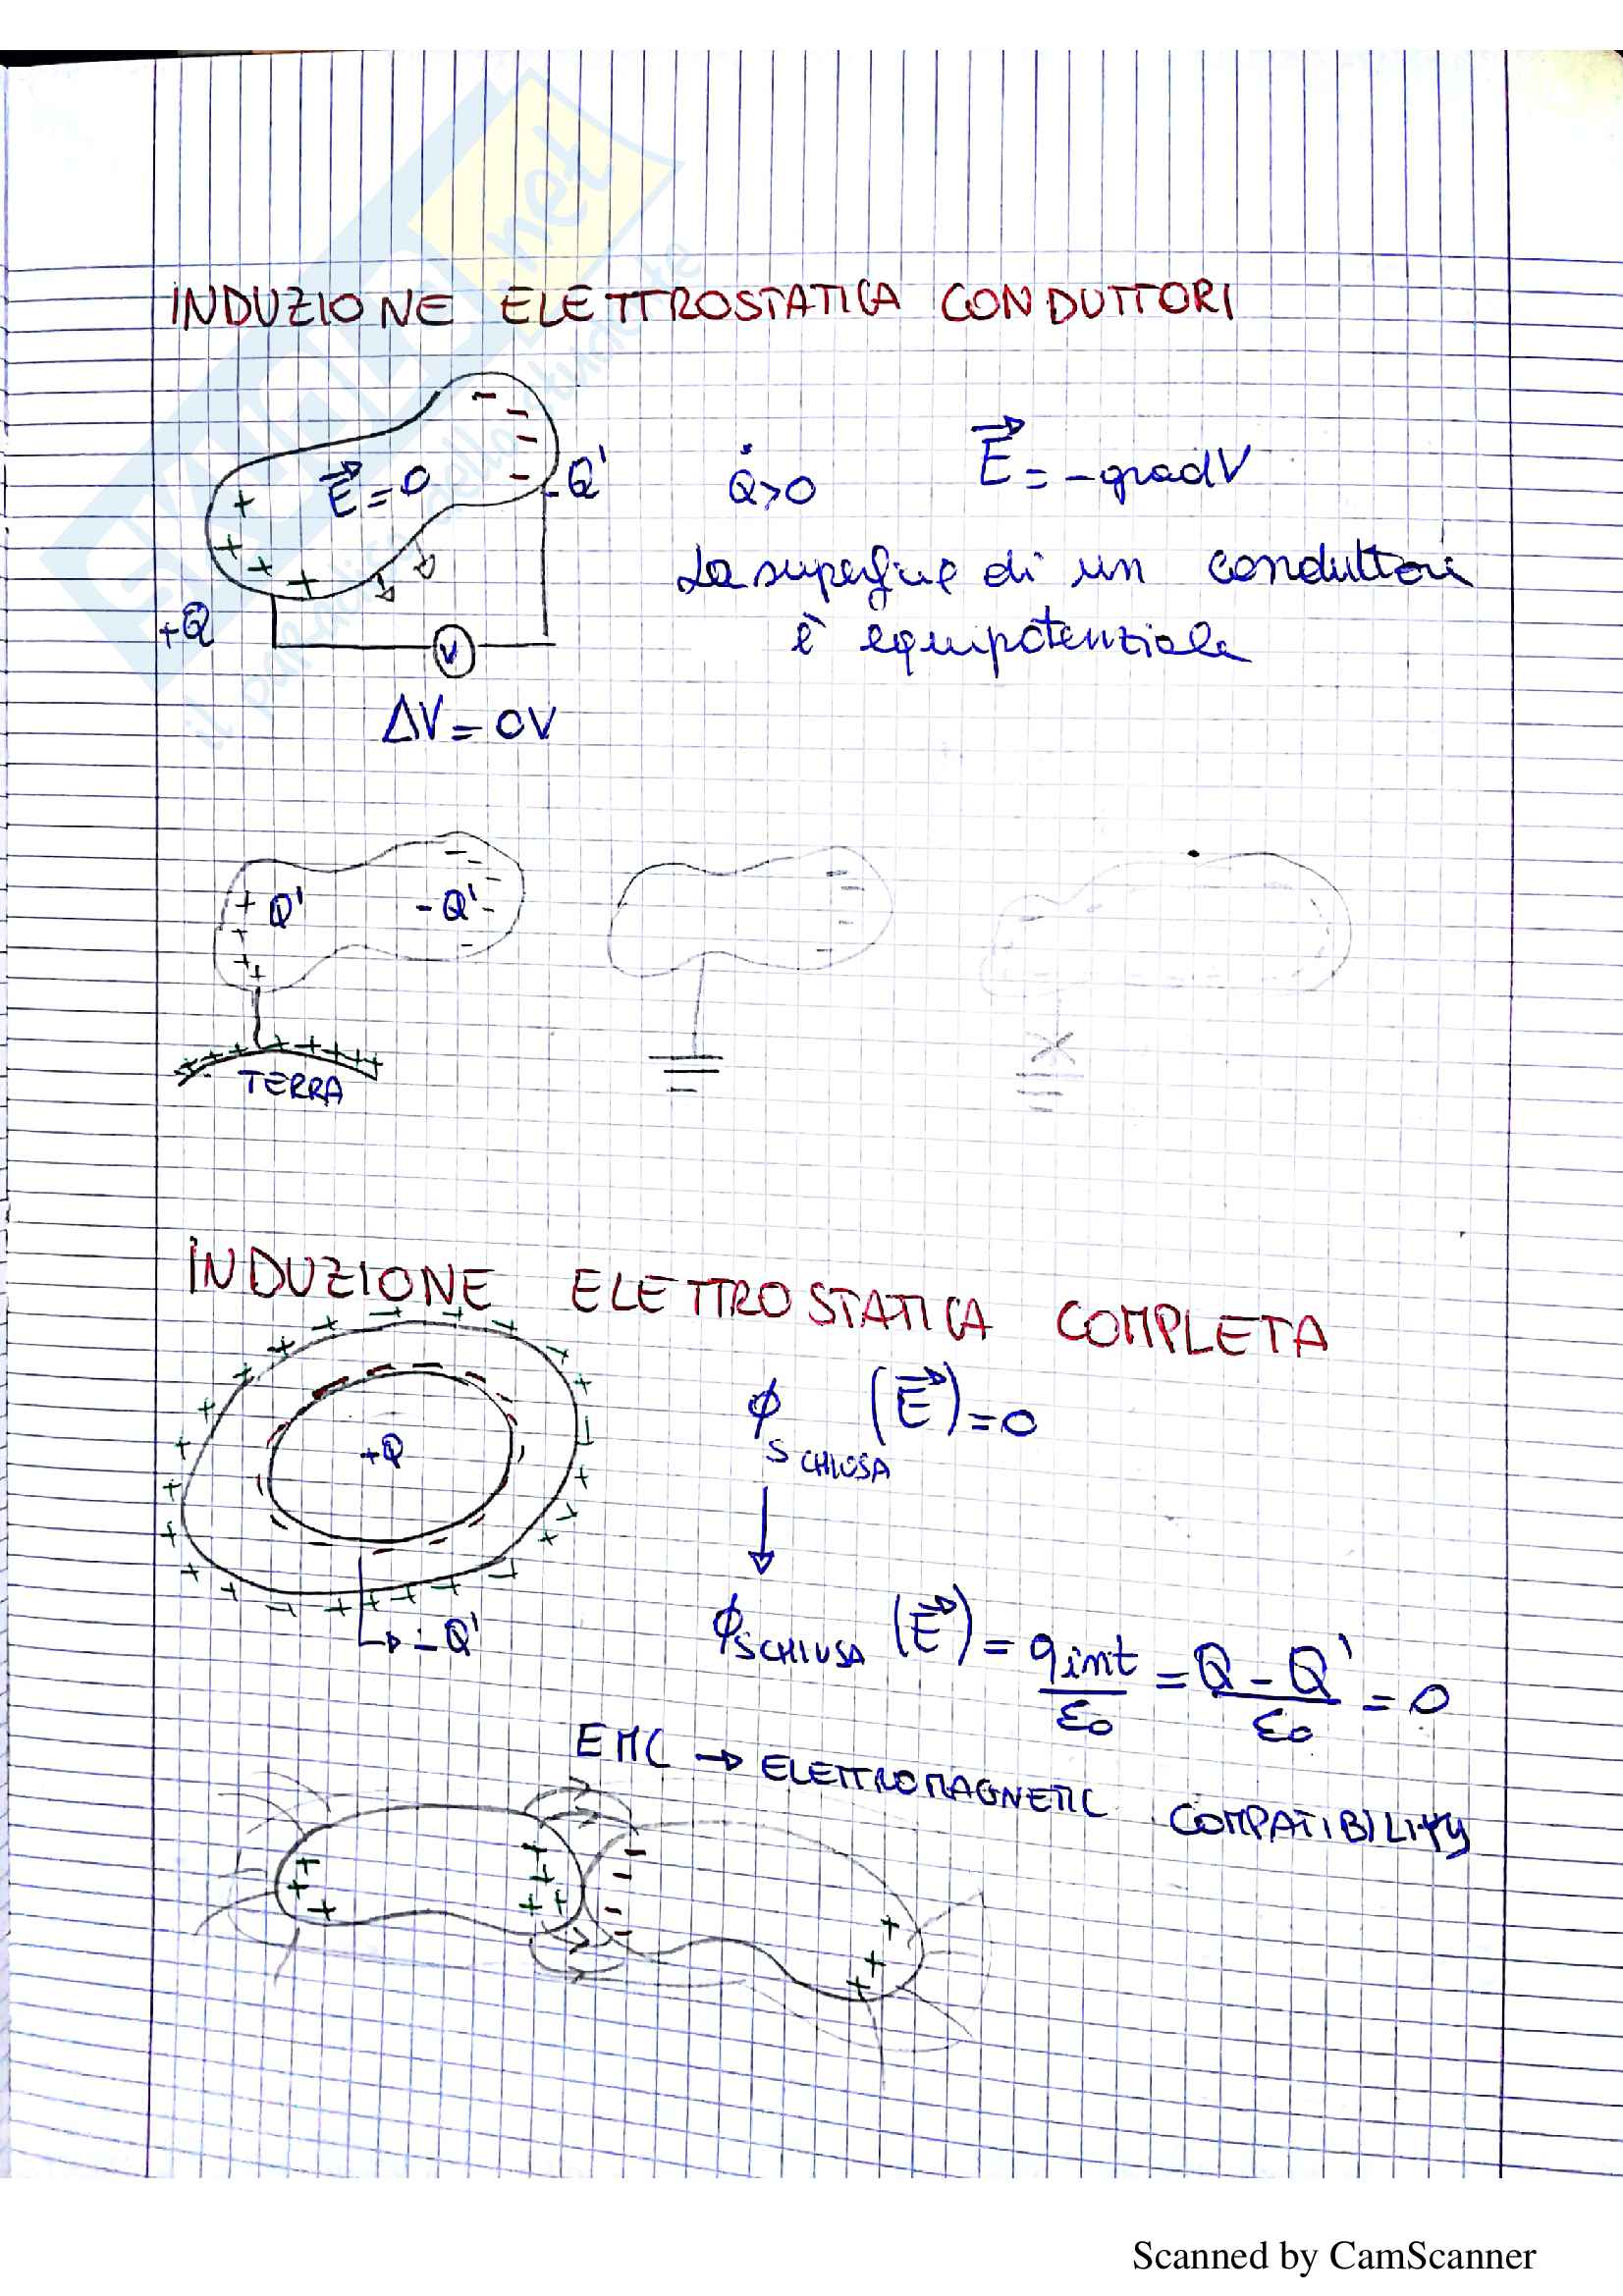 INDUZIONE ELETTROSTATICA CONDUTTORI
E = 0
-Q'
Q>0
E = -gradV
La superficie di un conduttore
è equipotenziale
+Q
V
ΔV = 0V
+ Q'
-Q'
TERRA
INDUZIONE ELETTROSTATICA COMPLETA
+Q
ϕ S CHIUSA (E) = 0
ϕ S CHIUSA (E) = qint/ε0 = Q - Q'/ε0 = 0
-Q'
EMC → ELETTROMAGNETIC COMPATIBILITY
SKUOLA.net
il paradiso dello studente
Scanned by CamScanner